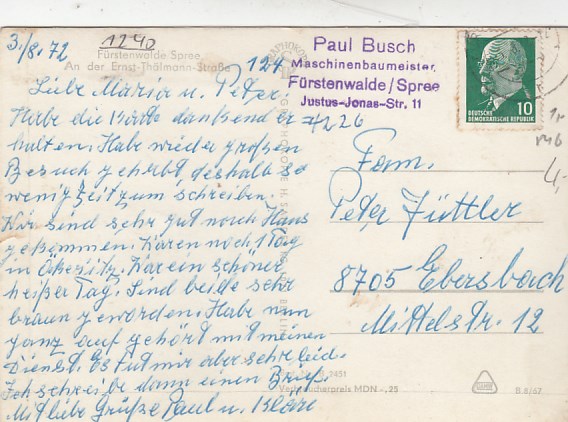 3./8.72
1240
Fürstenwalde Spree
An der Ernst-Thälmann-Straße
124
Liebe Maria u. Peter.
Habe die Karte dankend er
halten. Habe wieder großen
Besuch gehabt, deshalb so
wenig Zeit zum schreiben.
Wir sind sehr gut nach Haus
gekommen. Waren noch 1 Tag
in War ein schöner
heißer Tag. Sind beide sehr
braun geworden. Habe nun
ganz auf gehört mit meinen
Dienst. Es tut mir aber sehr leid.
Ich schreibe dann einen Brief.
Mit liebe Grüße Paul u. Kläre
Paul Busch
Maschinenbaumeister
Fürstenwalde/Spree
Justus-Jonas-Str. 11
10
DEUTSCHE
DEMOKRATISCHE REPUBLIK
Fam.
Peter Jüttler
8705 Ebersbach
Mittelstr. 12
2451
Verbraucherpreis MDN -,25
B 8/67